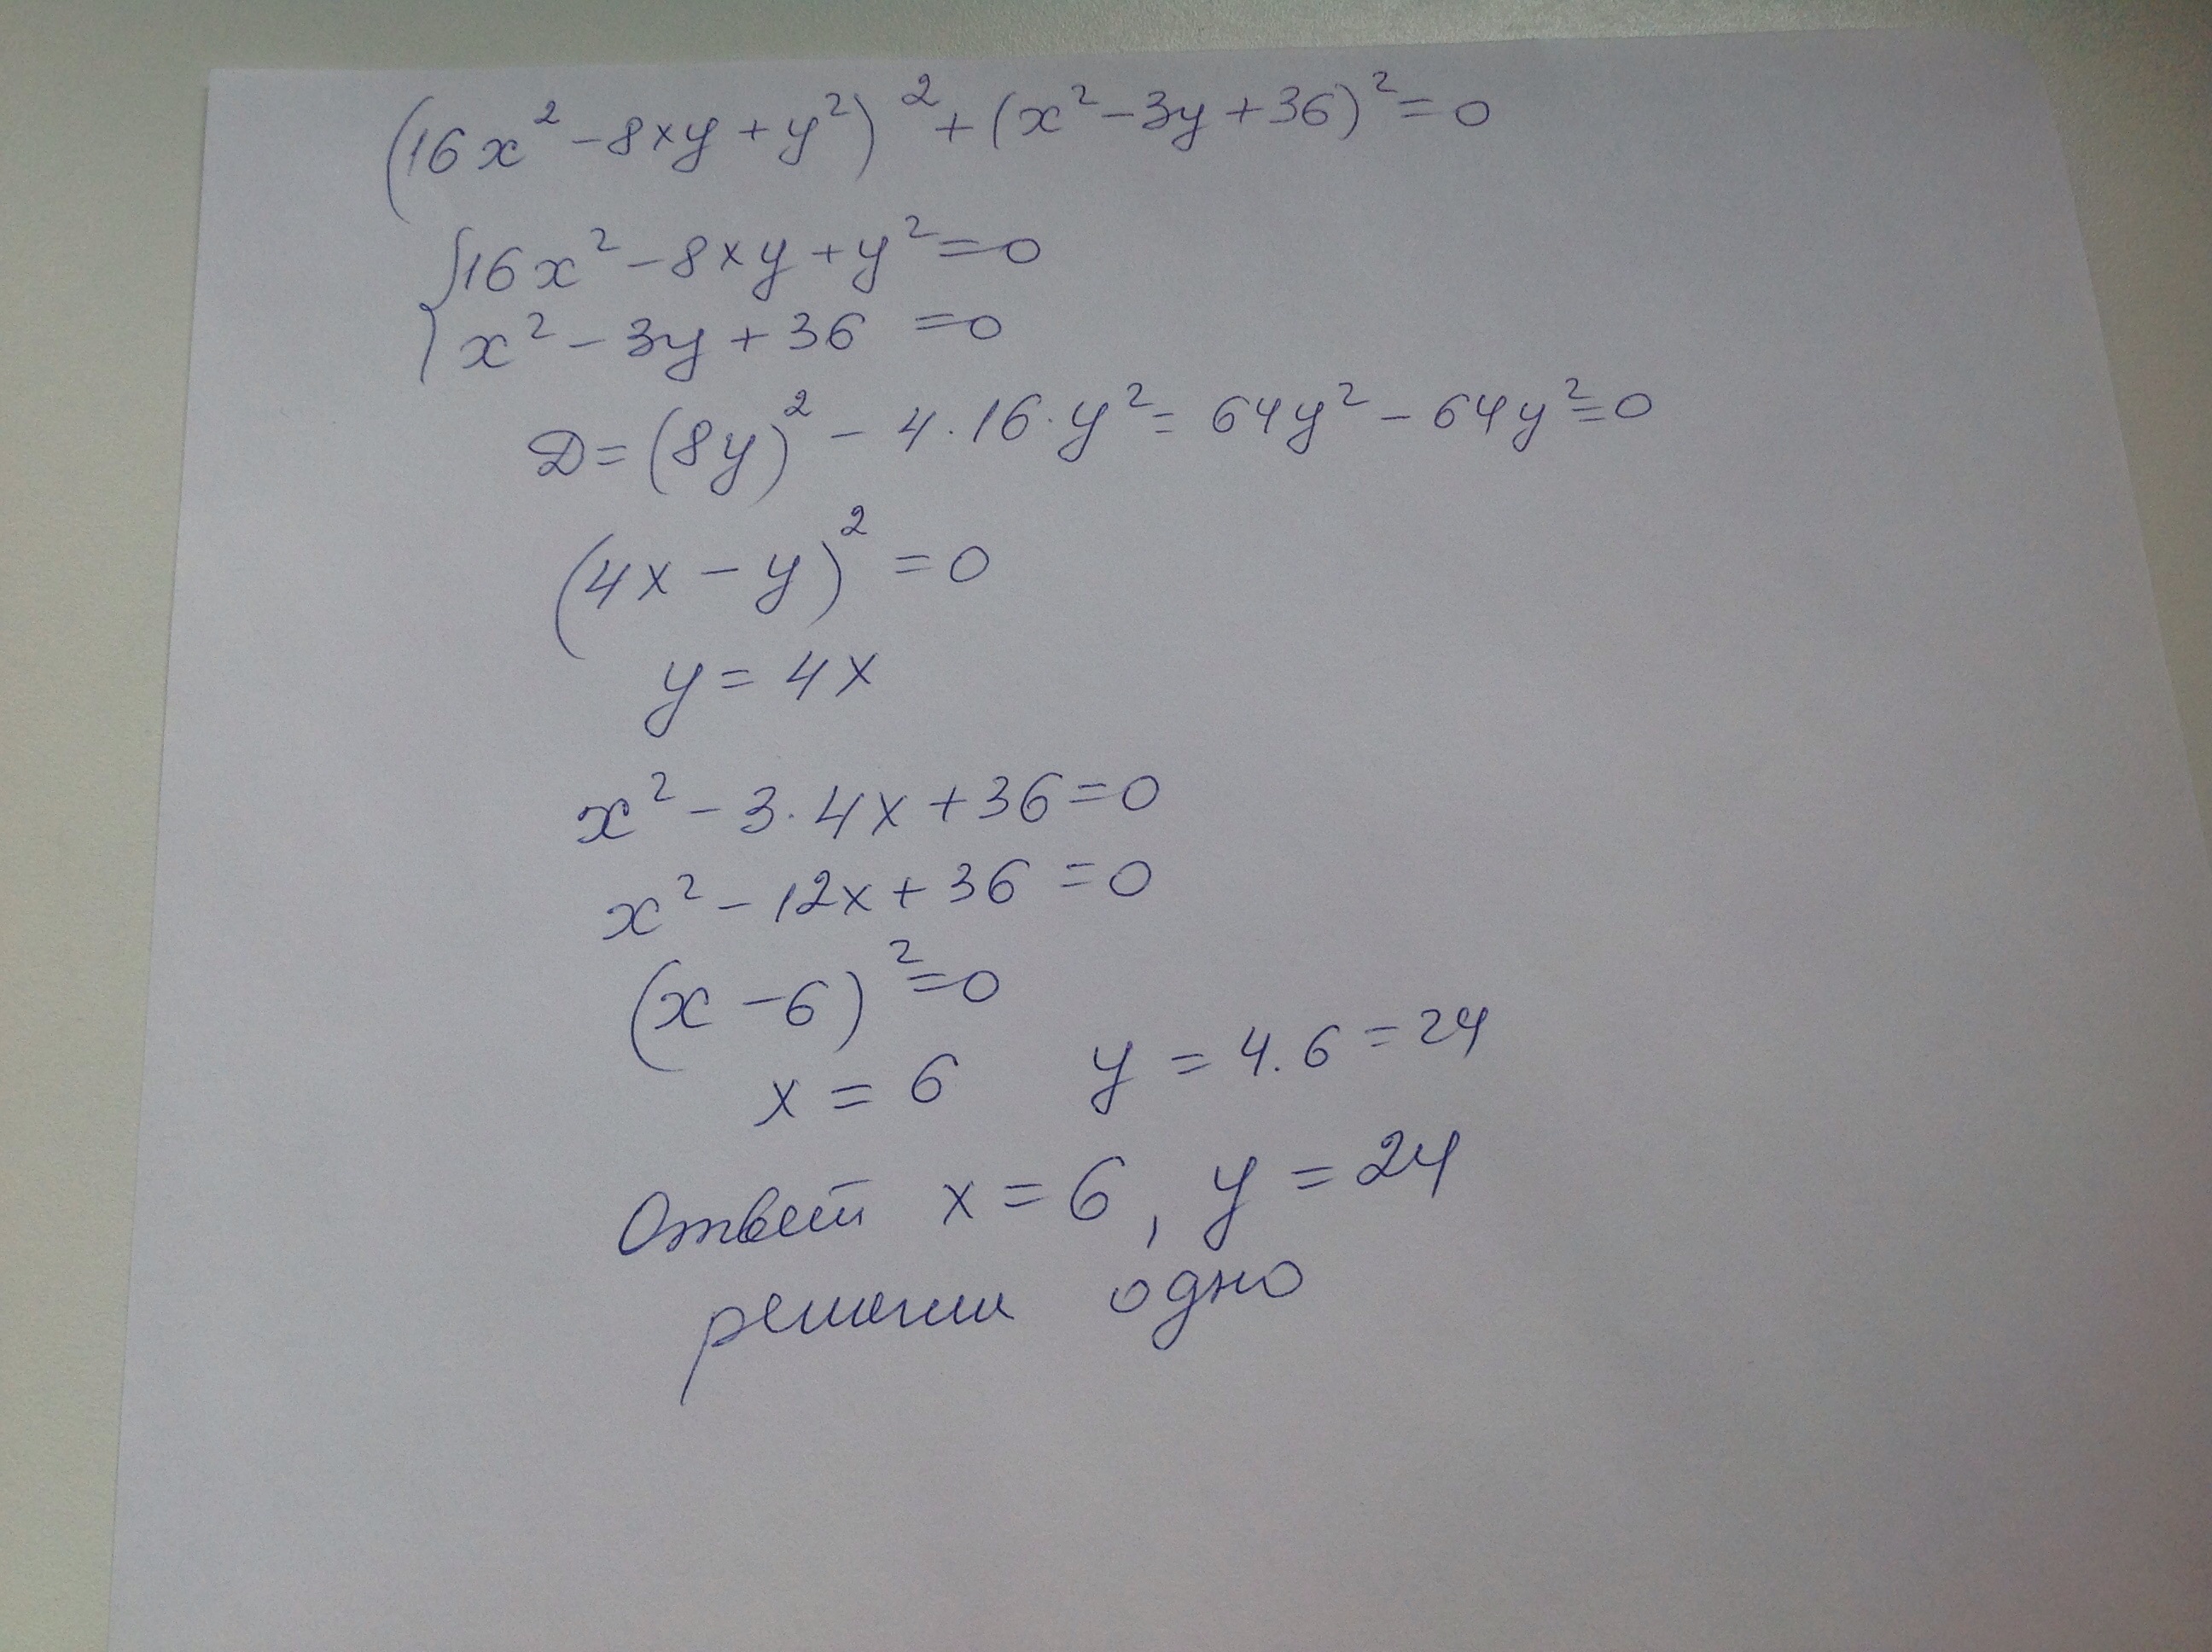 (16x² - 8xy + y²)² + (x² - 3y + 36)² = 0
{16x² - 8xy + y² = 0
x² - 3y + 36 = 0
D = (8y)² - 4·16·y² = 64y² - 64y² = 0
(4x - y)² = 0
y = 4x
x² - 3·4x + 36 = 0
x² - 12x + 36 = 0
(x - 6)² = 0
x = 6 y = 4·6 = 24
Ответ x = 6, y = 24
одно